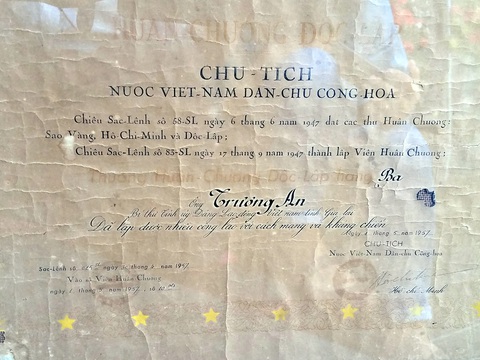 HUÂN CHƯƠNG ĐỘC LẬP
CHU-TICH
NUOC VIET-NAM DAN-CHU CONG-HOA
Chiêu Sac-Lênh sô 58-SL ngày 6 tháng 6 năm 1947 đat các thu Huân Chuong:
Sao Vàng, Hô-Chi-Minh và Dôc-Lâp;
Chiêu Sac-Lênh sô 83-SL ngày 17 tháng 9 năm 1947 thành lâp Viên Huân Chuong;
Thuong Huân-Chuong Dôc-Lâp hang
Ba
Ông Trương An
Bí thư tỉnh ủy Đảng Lao động Việt nam tỉnh Gia lai
Đã lập được nhiều công lao với cách mạng và kháng chiến
ngày tháng 5 năm 1957
CHU-TICH
Nuoc Viêt-Nam Dân-chu Công-hoa
Sac-Lênh sô ngày tháng năm 1957
Vào sô Viên Huân Chuong
ngày tháng 5 năm 1957, sô
Hồ chí Minh